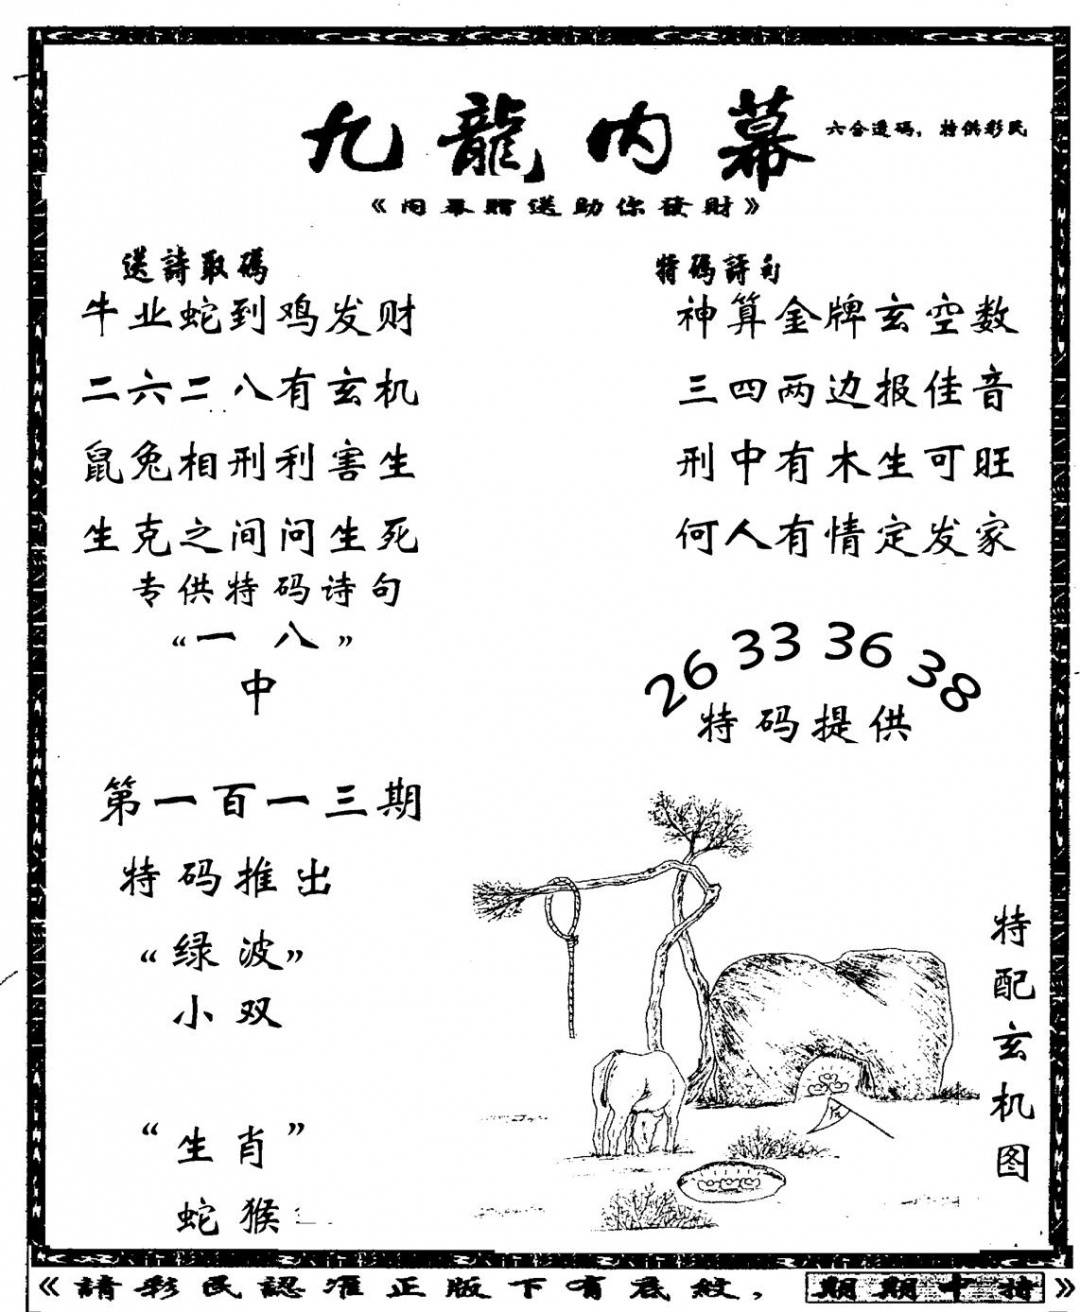 九龍內幕
六合透碼，特供彩民
《內幕贈送助你發財》
送詩取碼
牛业蛇到鸡发财
二六二八有玄机
鼠兔相刑利害生
生克之间问生死
专供特码诗句
“一八”
中
第一百一十三期
特码推出
“绿波”
小双
“生肖”
蛇猴
特碼詩句
神算金牌玄空数
三四两边报佳音
刑中有木生可旺
何人有情定发家
26 33 36 38
特码提供
特配玄机图
《請彩民認准正版下有底紋，期期中特》